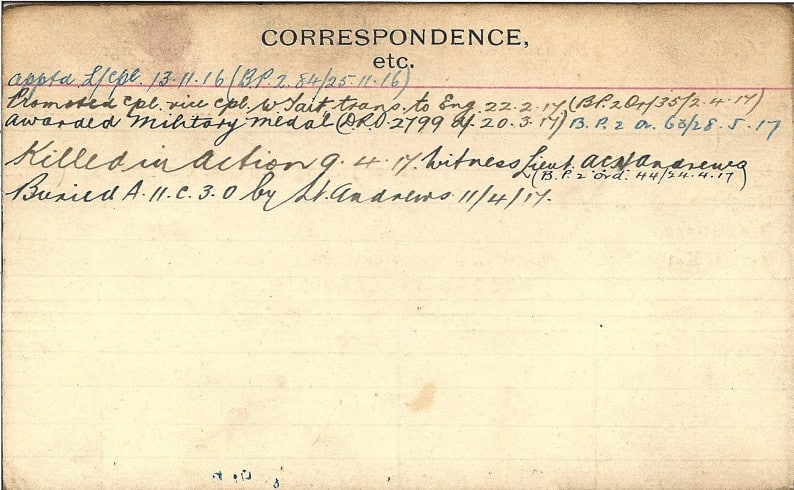 CORRESPONDENCE,
etc.
Appt'd L/Cpl. 13.11.16 (B.P.2. 84/25.11.16)
Promoted Cpl. vice Cpl. W Tait trans. to Eng. 22.2.17 (B.P.2 Or/35/2.4.17)
Awarded Military Medal (D.R.O. 2799 of 20.3.17) B.P.2 Or. 63/28.5.17
Killed in Action 9.4.17. Witness Lieut. Andrews
(B.P.2 Ord. 44/24.4.17)
Buried A.11.C.3.0 by Lt. Andrews 11/4/17.